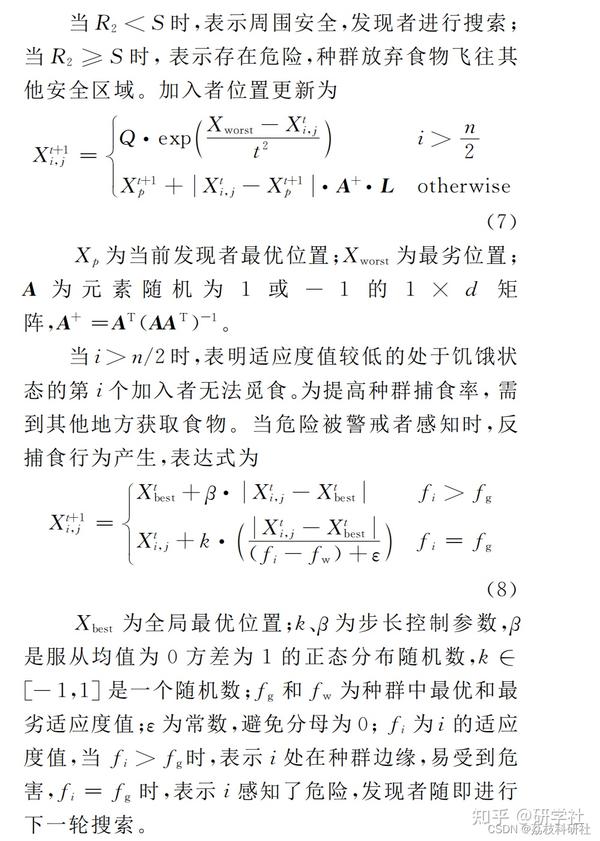 当 R₂ < S 时,表示周围安全,发现者进行搜索;
当 R₂ ⩾ S 时,表示存在危险,种群放弃食物飞往其
他安全区域。加入者位置更新为
X_{i,j}^{t+1} = { Q · exp( (X_worst − X_{i,j}^t) / t² )  i > n/2
X_p^{t+1} + | X_{i,j}^t − X_p^{t+1} | · A⁺ · L  otherwise
(7)
X_p 为当前发现者最优位置;X_worst 为最劣位置;
A 为元素随机为 1 或 − 1 的 1 × d 矩
阵,A⁺ = Aᵀ(AAᵀ)⁻¹。
当 i > n/2 时,表明适应度值较低的处于饥饿状
态的第 i 个加入者无法觅食。为提高种群捕食率,需
到其他地方获取食物。当危险被警戒者感知时,反
捕食行为产生,表达式为
X_{i,j}^{t+1} = { X_best^t + β · | X_{i,j}^t − X_best^t |  f_i > f_g
X_{i,j}^t + k · ( | X_{i,j}^t − X_best^t | / ((f_i − f_w) + ε) )  f_i = f_g
(8)
X_best 为全局最优位置;k、β 为步长控制参数,β
是服从均值为 0 方差为 1 的正态分布随机数,k ∈
[−1,1] 是一个随机数;f_g 和 f_w 为种群中最优和最
劣适应度值;ε 为常数,避免分母为 0; f_i 为 i 的适应
度值,当 f_i > f_g 时,表示 i 处在种群边缘,易受到危
害,f_i = f_g 时,表示 i 感知了危险,发现者随即进行
下一轮搜索。
知乎 @研学社
CSDN @荔枝科研社